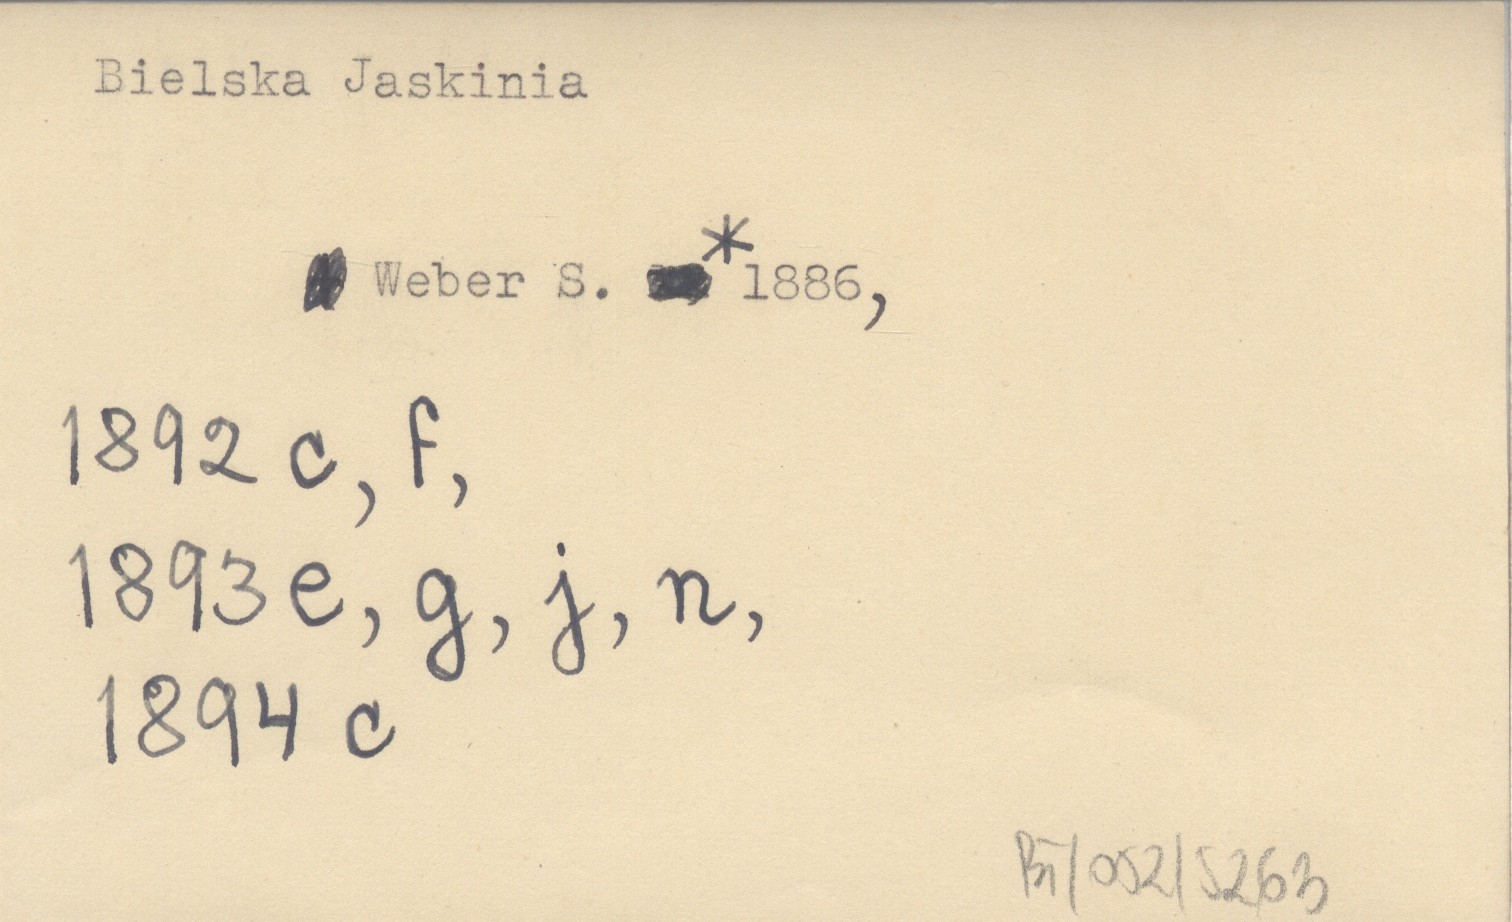 Bielska Jaskinia
Weber S. *1886,
1892 c, f,
1893 e, g, j, n,
1894 c
BT/052/5263